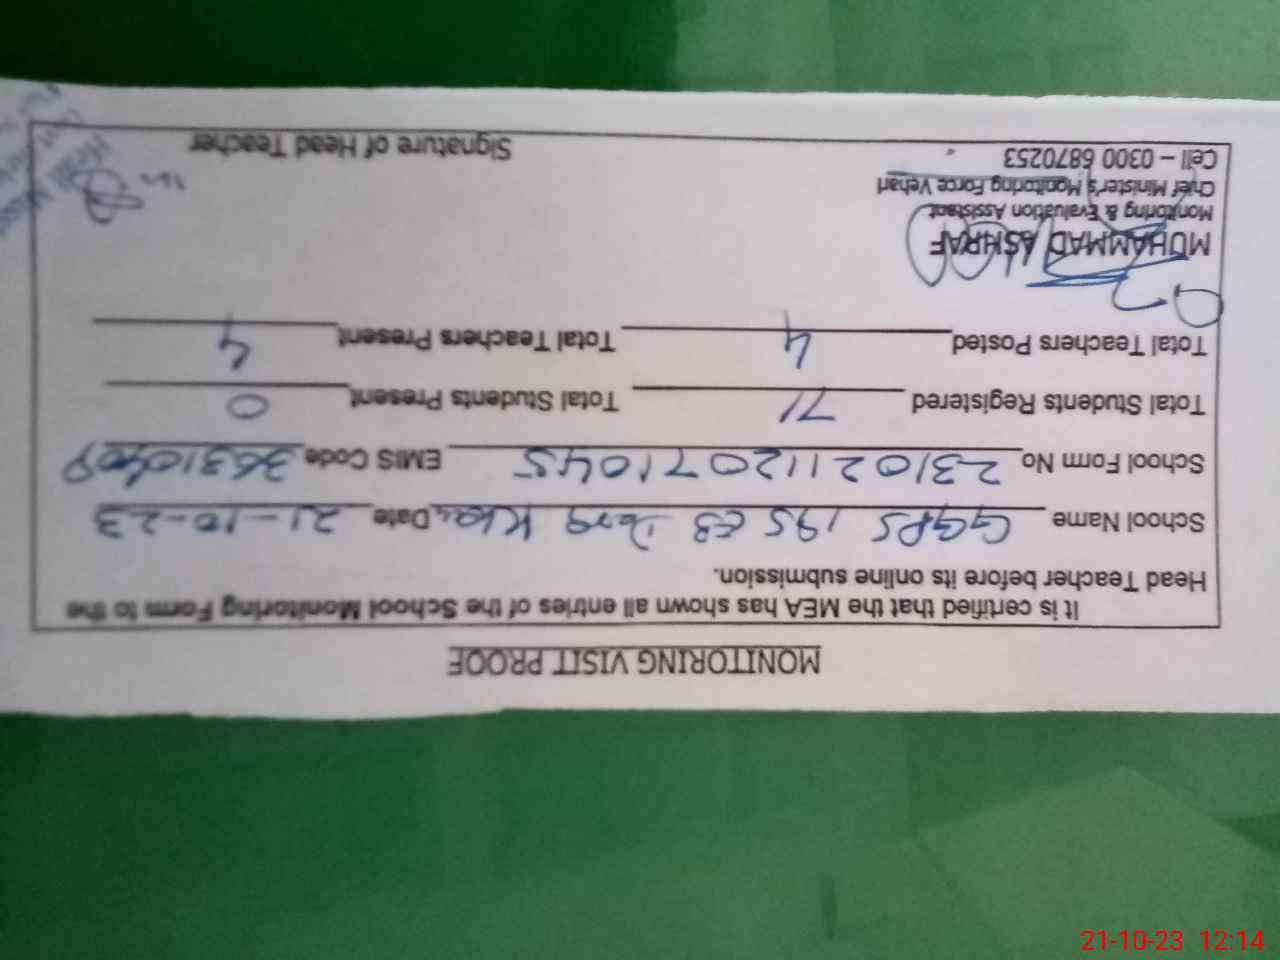 MONITORING VISIT PROOF
It is certified that the MEA has shown all entries of the School Monitoring Form to the
Head Teacher before its online submission.
School Name GGPS 195 EB Date 21-10-23
School Form No 23102112071045 EMIS Code
Total Students Registered 71 Total Students Present 0
Total Teachers Posted 4 Total Teachers Present 4
MUHAMMAD ASHRAF
Monitoring & Evaluation Assistant
Chief Minister's Monitoring Force Vehari
Cell – 0300 6870253 Signature of Head Teacher
21-10-23 12:14